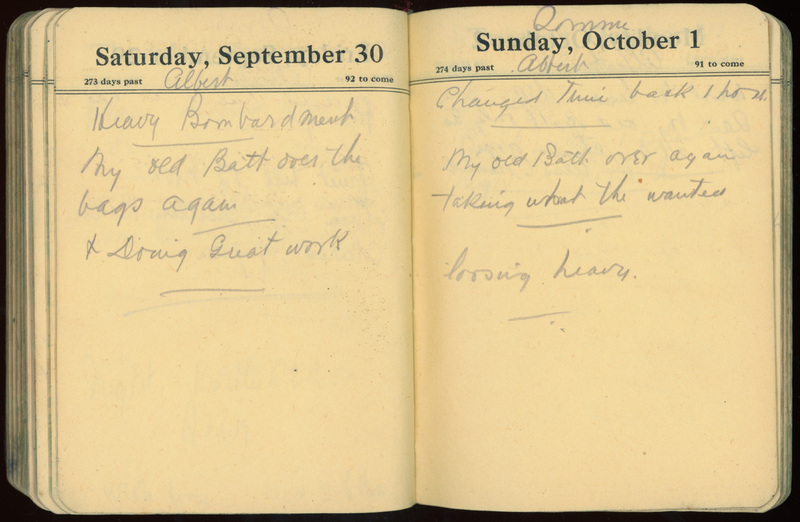 Saturday, September 30
273 days past
Albert
92 to come
Heavy Bombardment
My old Batt over the
bags again
& Doing Great work
Somme
Sunday, October 1
274 days past
Albert
91 to come
Changed Time back 1 hour
My old Batt over again
taking what the wanted
loosing heavy.